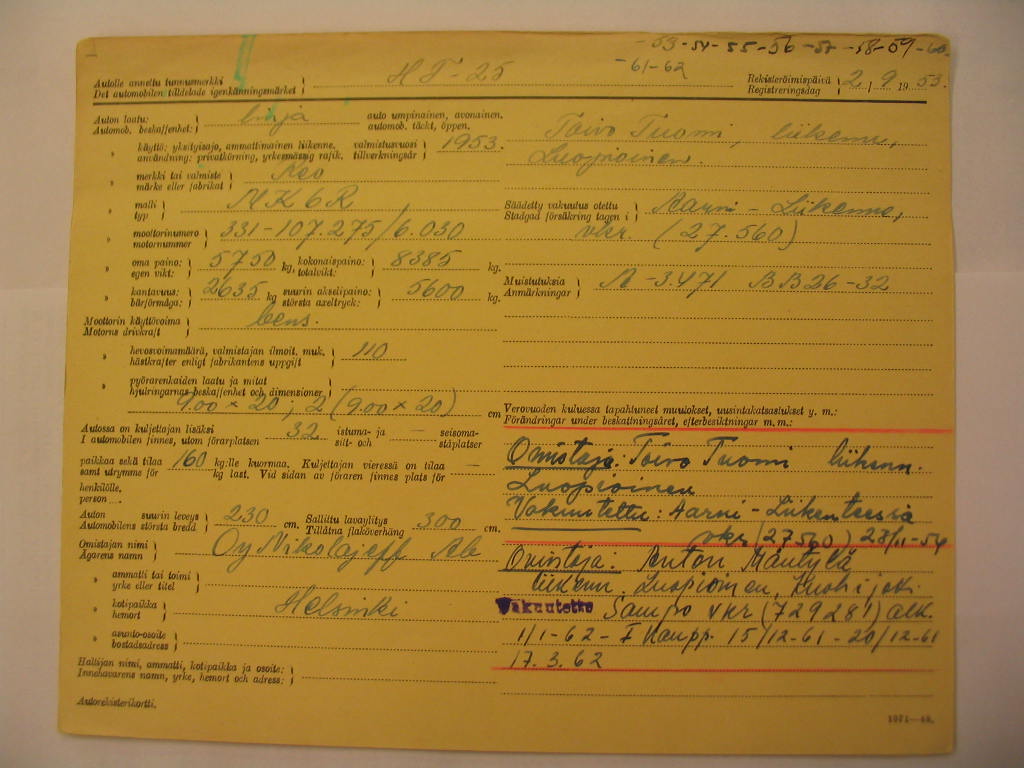 -53-54-55-56-57-58-59-60
-61-62
Autolle annettu tunnusmerkki
Det automobilen tilldelade igenkänningsmärket } HT-25
Rekisteröimispäivä
Registreringsdag } 2 / 9 1953.
Auton laatu:
Automob. beskaffenhet: } linja
auto umpinainen, avonainen.
automob. täckt, öppen.
" käyttö: yksityisajo, ammattimainen liikenne.
användning: privatkörning, yrkesmässig trafik.
valmistusvuosi
tillverkningsår } 1953.
" merkki tai valmiste
märke eller fabrikat } Reo
" malli
typ } MK6R
" moottorinumero
motornummer } 331-107.275/6.030
" oma paino:
egen vikt: } 5750 kg, kokonaispaino:
totalvikt: } 8385 kg.
" kantavuus:
bärförmåga: } 2635 kg suurin akselipaino:
största axeltryck: } 5600 kg.
Moottorin käyttövoima
Motorns drivkraft } bens.
" hevosvoimamäärä, valmistajan ilmoit. muk.
hästkrafter enligt fabrikantens uppgift } 110
" pyörärenkaiden laatu ja mitat
hjulringarnas beskaffenhet och dimensioner }
9.00 × 20 ; 2 (9.00 × 20) cm
Autossa on kuljettajan lisäksi
I automobilen finnes, utom förarplatsen } 32 istuma- ja
sitt- och — seisoma-
ståplatser
paikkaa sekä tilaa
samt utrymme för } 160 kg:lle kuormaa. Kuljettajan vieressä on tilaa
kg last. Vid sidan av föraren finnes plats för —
henkilölle.
person....
Auton suurin leveys
Automobilens största bredd } 230 cm. Sallittu lavaylitys
Tillåtna flaköverhäng } 300 cm.
Omistajan nimi
Ägarens namn } Oy Nikolajeff Ab
" ammatti tai toimi
yrke eller titel }
" kotipaikka
hemort } Helsinki
" asunto-osoite
bostadsadress }
Haltijan nimi, ammatti, kotipaikka ja osoite:
Innehavarens namn, yrke, hemort och adress: }
Autorekisterikortti.
Toivo Tuomi, liikenn.,
Luopioinen.
Säädetty vakuutus otettu
Stadgad försäkring tagen i } Aarni-Liikenne,
vkr. (27.560)
Muistutuksia
Anmärkningar } A-3.471 BB26-32
Verovuoden kuluessa tapahtuneet muutokset, uusintakatsastukset y. m.:
Förändringar under beskattningsåret, efterbesiktningar m. m.:
Omistaja: Toivo Tuomi liikenn.
Luopioinen
Vakuutettu: Aarni-Liikenteessä
vkr (27560) 23/11-54
Omistaja: Anton Mäntylä
liikenn., Luopioinen, Kuohijoki.
Vakuutettu Sampo vkr (729281) alk.
1/1-62 - F Kaupp. 15/12-61 - 20/12-61
17.3.62